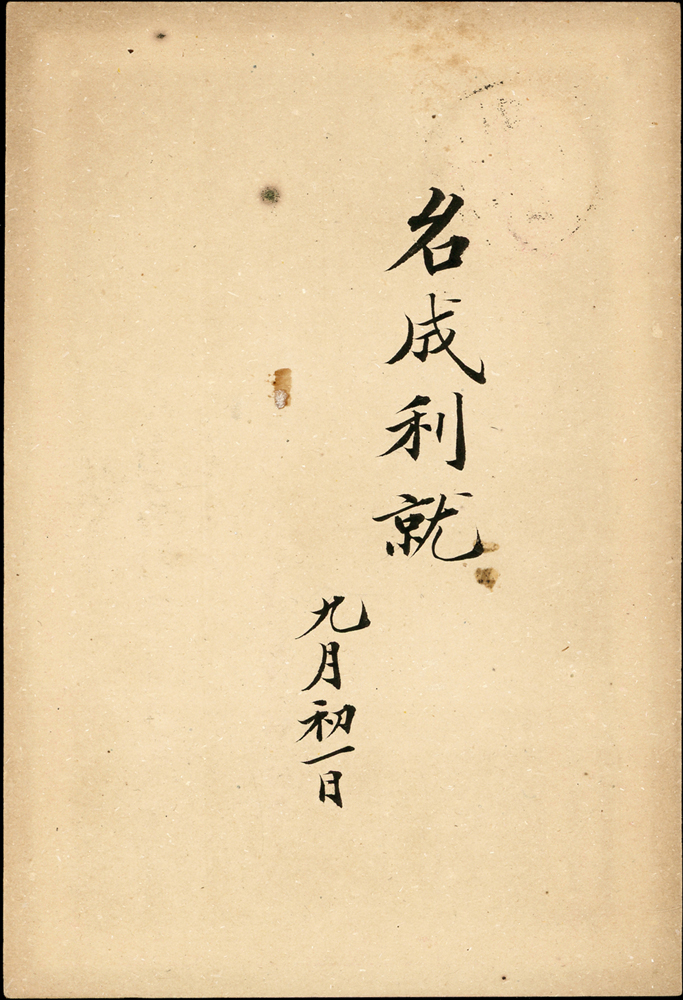 名成利就
九月初一日